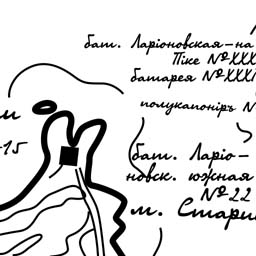 бат. Ларіоновская-на
Піке №XXX
батарея №XXXI
полукапонірѣ N
м
15
бат. Ларіо-
новск. южная
№22
м. Стари